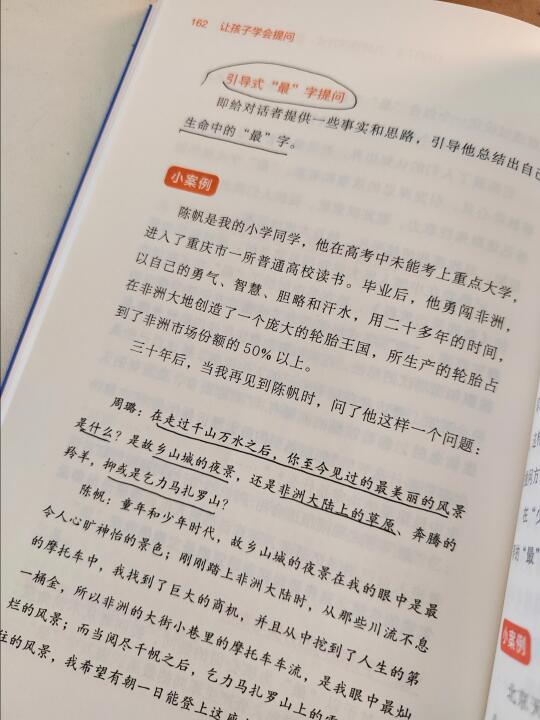 162 让孩子学会提问
引导式“最”字提问
即给对话者提供一些事实和思路，引导他总结出自己
生命中的“最”字。
小案例
陈帆是我的小学同学，他在高考中未能考上重点大学，
进入了重庆市一所普通高校读书。毕业后，他勇闯非洲，
以自己的勇气、智慧、胆略和汗水，用二十多年的时间，
在非洲大地创造了一个庞大的轮胎王国，所生产的轮胎占
到了非洲市场份额的50%以上。
三十年后，当我再见到陈帆时，问了他这样一个问题：
周璐：在走过千山万水之后，你至今见过的最美丽的风景
是什么？是故乡山城的夜景，还是非洲大陆上的草原、奔腾的
羚羊，抑或是乞力马扎罗山？
陈帆：童年和少年时代，故乡山城的夜景在我的眼中是最
令人心旷神怡的景色；刚刚踏上非洲大陆时，从那些川流不息
的摩托车中，我找到了巨大的商机，并且从中挖到了人生的第
一桶金，所以非洲的大街小巷里的摩托车车流，是我眼中最灿
烂的风景；而当阅尽千帆之后，乞力马扎罗山上的雪
往的风景，我希望有朝一日能登上这座
在“少
的“最”
小案例
北京